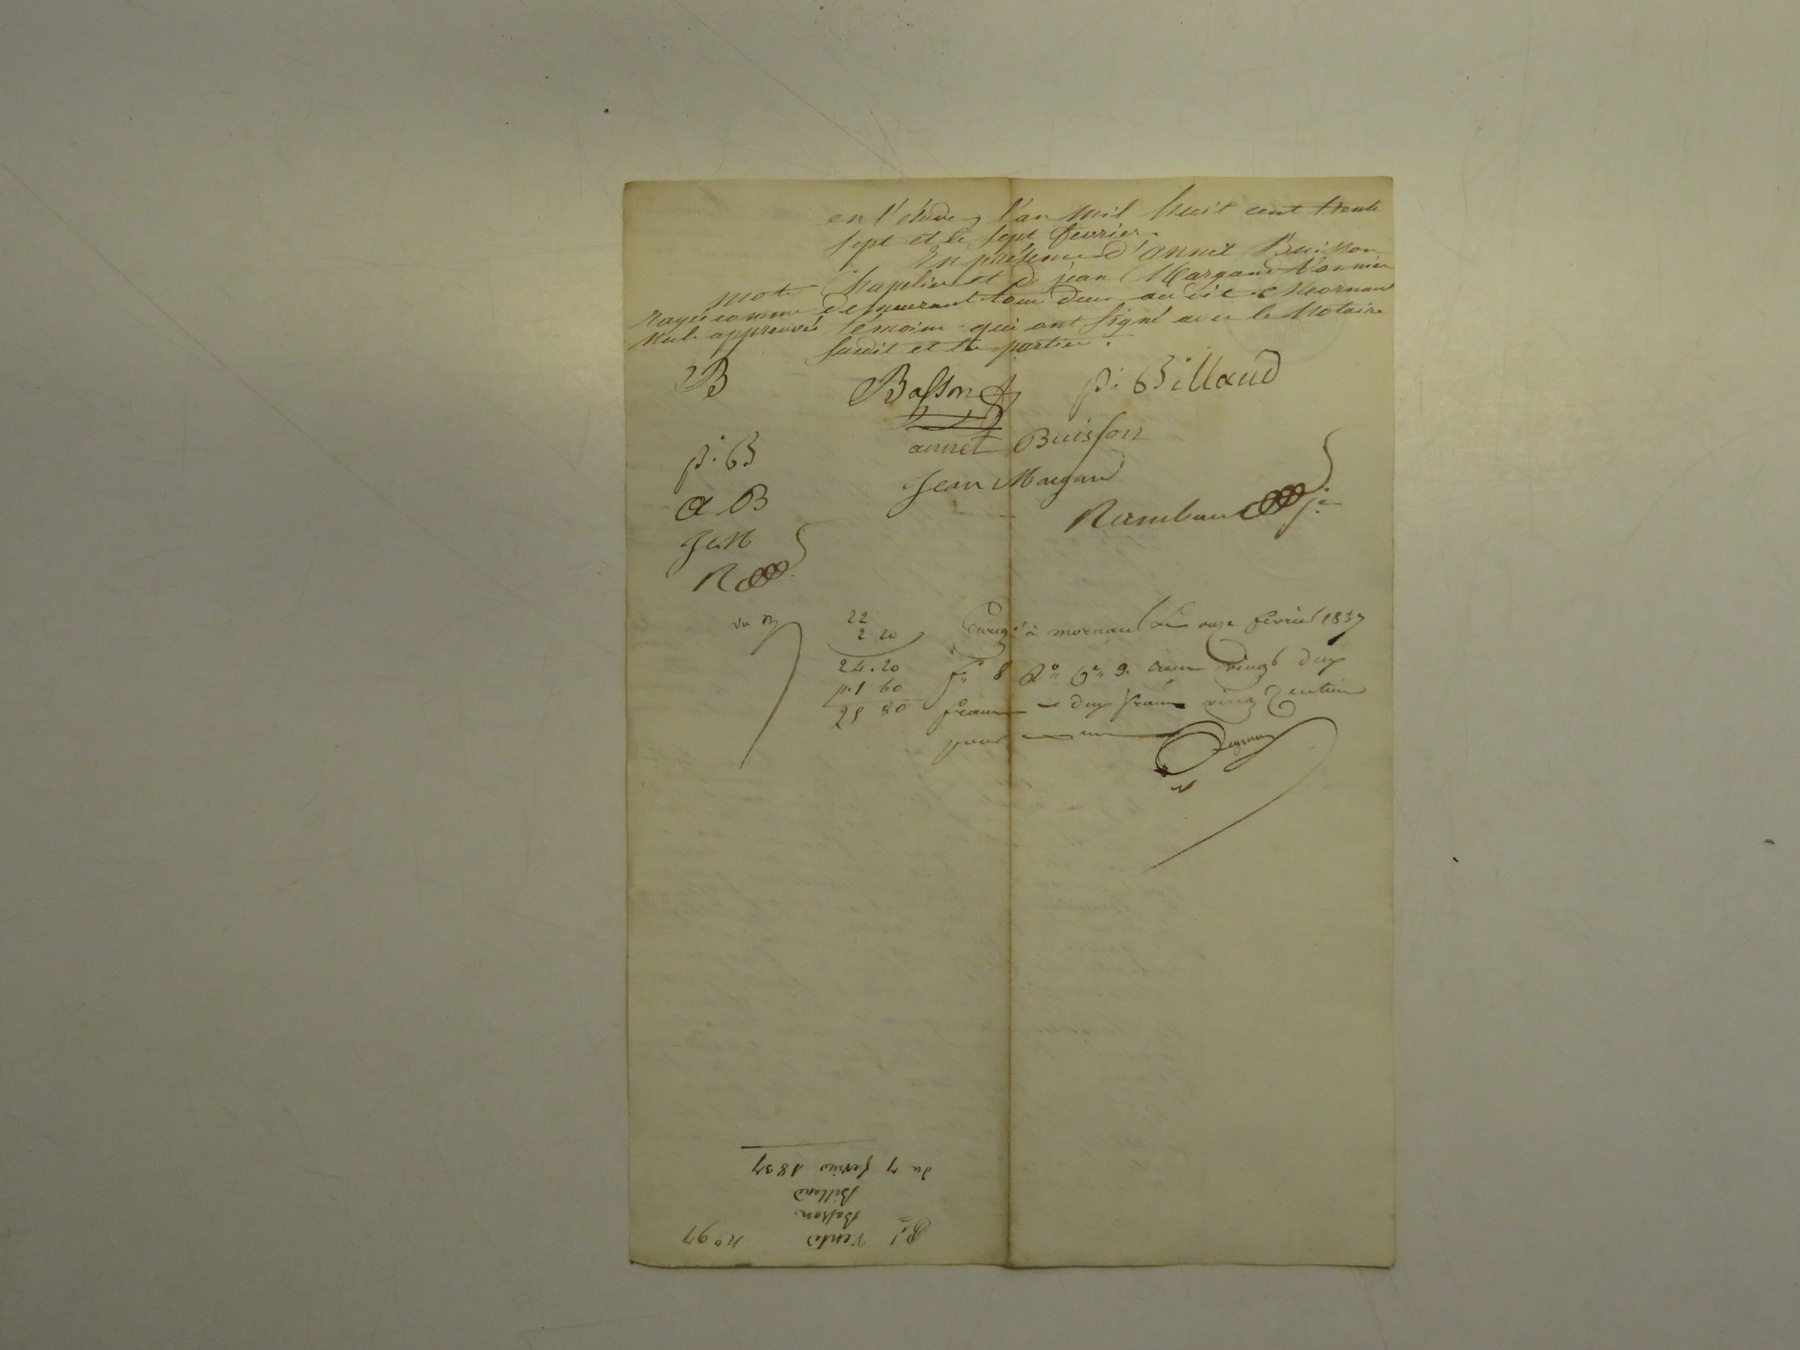 en l'étude, l'an mil huit cent trente
sept et le sept fevrier.
En présence d'annet Buisson
chapelier et de jean Margand
demeurant tous deux au dit Mornant
témoins qui ont signé avec le Notaire
susdit et les parties.
mots
Rayé comme
Nul approuvés
B
p. B
a B
R
Basson
p. Billaud
annet Buisson
Jean Margand
Rambaud
vu
22
2.20
24.20
p. 1 60
25 80
Enreg.é à mornant Le onze février 1837
f° 8 R° C° 9. vingt deux
francs deux francs vingt centimes
pour
n° 97
Vente
Basson
Billaud
du 7 fevrier 1837